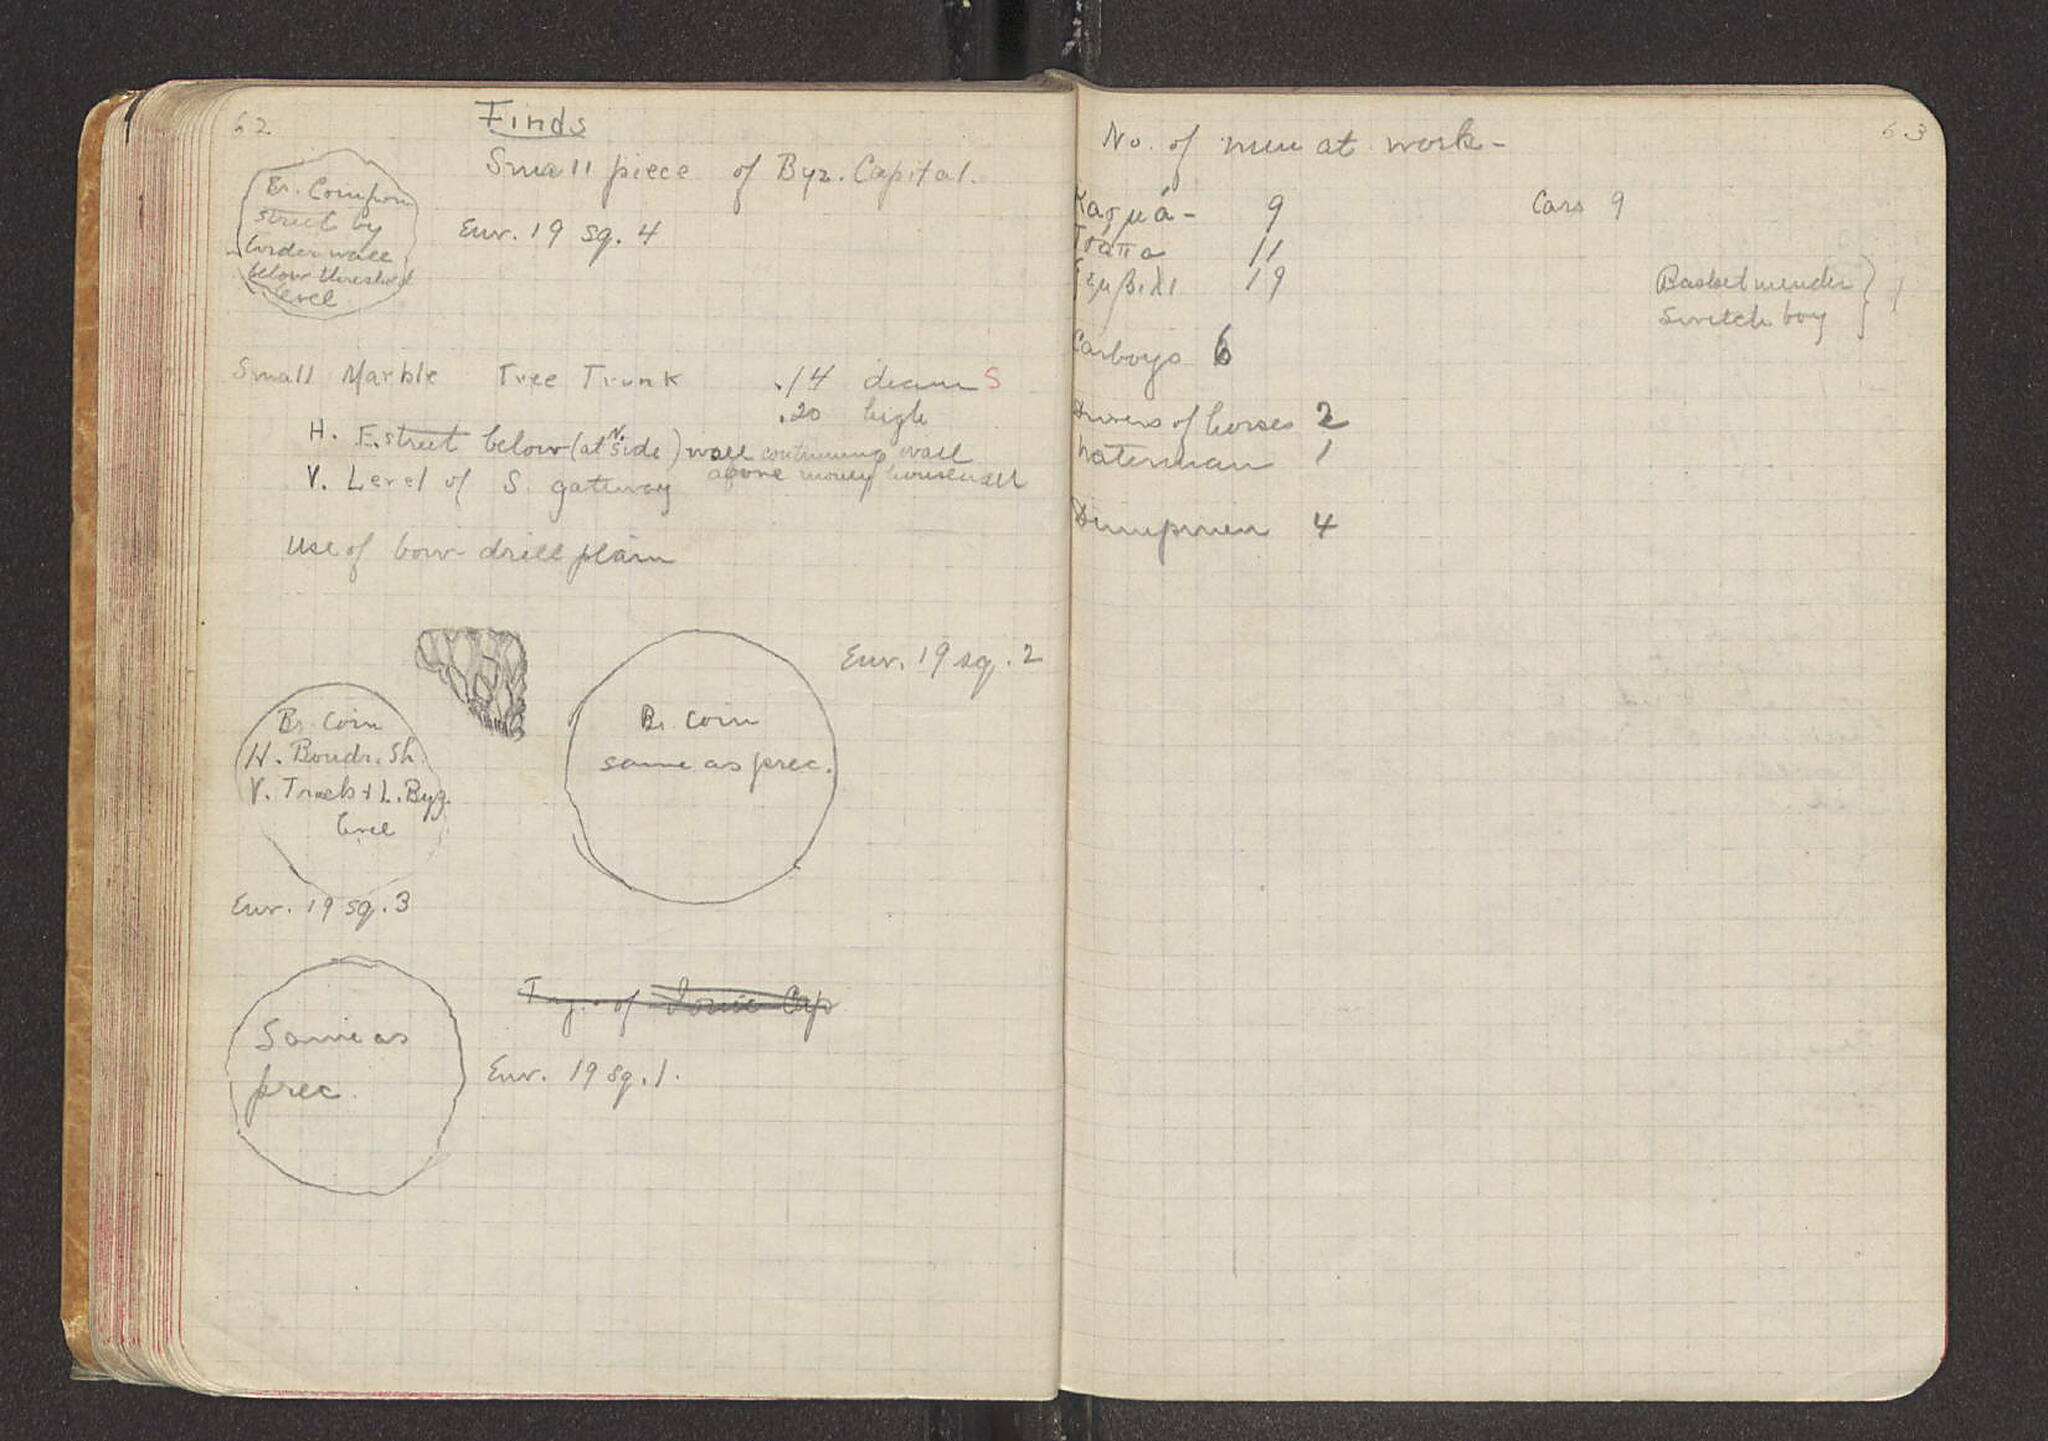 62
Finds
Small piece of Byz. Capital.
Br. Coin from
street by
border wall
below threshold
level
Env. 19 sq. 4
Small Marble Tree Trunk .14 diam S
.20 high
H. E. street below (at N. side) wall continuing wall
above money house wall
V. Level of S. gateway
Use of bow-drill plain
Env. 19 sq. 2
Br. Coin
H. Boudr. Sh.
V. Track + L. Byz.
level
Br. coin
same as prec.
Env. 19 sq. 3
Same as
prec.
Frg. of Ionic Cap
Env. 19 sq. 1.
63
No. of men at work-
Κασμά- 9
Cars 9
Τσάπα 11
19
Basket mender } 1
Switch boy
Carboys 6
Drivers of horses 2
Waterman 1
Dumpmen 4